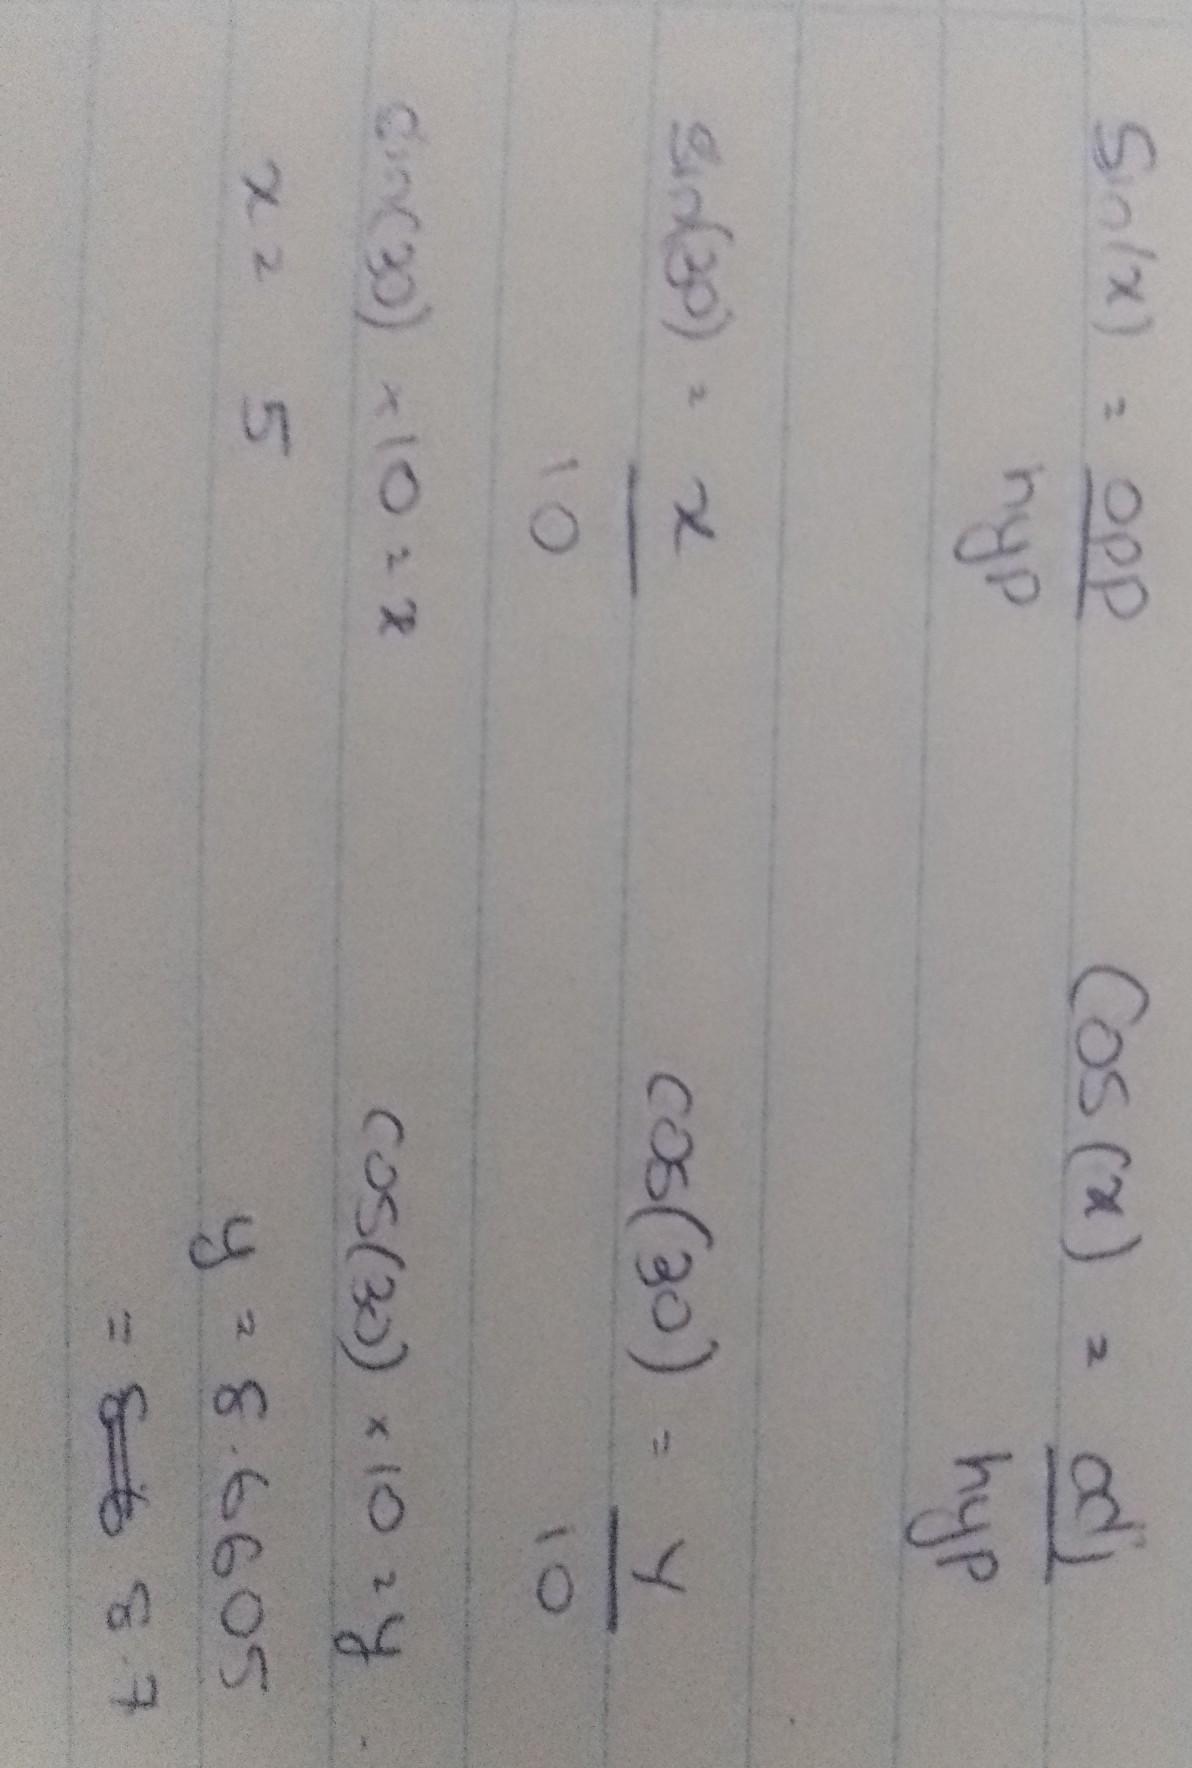 Sin(x) = opp Cos(x) = adj
hyp hyp
Sin(30) = x cos(30) = y
10 10
sin(30) × 10 = x cos(30) × 10 = y
x = 5 y = 8.6605
= 8.7